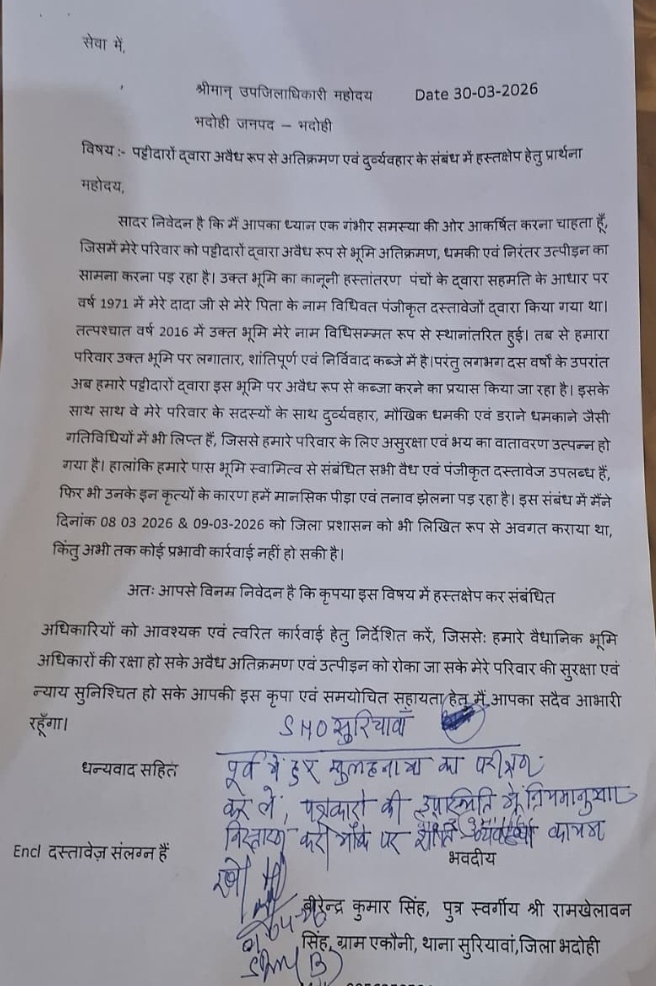 सेवा में,
श्रीमान् उपजिलाधिकारी महोदय Date 30-03-2026
भदोही जनपद – भदोही
विषय:- पट्टीदारों द्वारा अवैध रूप से अतिक्रमण एवं दुर्व्यवहार के संबंध में हस्तक्षेप हेतु प्रार्थना
महोदय,
सादर निवेदन है कि मैं आपका ध्यान एक गंभीर समस्या की ओर आकर्षित करना चाहता हूँ,
जिसमें मेरे परिवार को पट्टीदारों द्वारा अवैध रूप से भूमि अतिक्रमण, धमकी एवं निरंतर उत्पीड़न का
सामना करना पड़ रहा है। उक्त भूमि का कानूनी हस्तांतरण पंचों के द्वारा सहमति के आधार पर
वर्ष 1971 में मेरे दादा जी से मेरे पिता के नाम विधिवत पंजीकृत दस्तावेजों द्वारा किया गया था।
तत्पश्चात वर्ष 2016 में उक्त भूमि मेरे नाम विधिसम्मत रूप से स्थानांतरित हुई। तब से हमारा
परिवार उक्त भूमि पर लगातार, शांतिपूर्ण एवं निर्विवाद कब्जे में है।परंतु लगभग दस वर्षों के उपरांत
अब हमारे पट्टीदारों द्वारा इस भूमि पर अवैध रूप से कब्जा करने का प्रयास किया जा रहा है। इसके
साथ साथ वे मेरे परिवार के सदस्यों के साथ दुर्व्यवहार, मौखिक धमकी एवं डराने धमकाने जैसी
गतिविधियों में भी लिप्त हैं, जिससे हमारे परिवार के लिए असुरक्षा एवं भय का वातावरण उत्पन्न हो
गया है। हालांकि हमारे पास भूमि स्वामित्व से संबंधित सभी वैध एवं पंजीकृत दस्तावेज उपलब्ध हैं,
फिर भी उनके इन कृत्यों के कारण हमें मानसिक पीड़ा एवं तनाव झेलना पड़ रहा है। इस संबंध में मैंने
दिनांक 08 03 2026 & 09-03-2026 को जिला प्रशासन को भी लिखित रूप से अवगत कराया था,
किंतु अभी तक कोई प्रभावी कार्रवाई नहीं हो सकी है।
अतः आपसे विनम्र निवेदन है कि कृपया इस विषय में हस्तक्षेप कर संबंधित
अधिकारियों को आवश्यक एवं त्वरित कार्रवाई हेतु निर्देशित करें, जिससे: हमारे वैधानिक भूमि
अधिकारों की रक्षा हो सके अवैध अतिक्रमण एवं उत्पीड़न को रोका जा सके मेरे परिवार की सुरक्षा एवं
न्याय सुनिश्चित हो सके आपकी इस कृपा एवं समयोचित सहायता हेतु मैं आपका सदैव आभारी
रहूँगा।
SHO सुरियावाँ
धन्यवाद सहित
पूर्व में हुए सुलहनामा का परीक्षण
कर लें, पक्षकारों की उपस्थिति में नियमानुसार
निस्तारण करें मौके पर शान्ति व्यवस्था कायम
रखें
Encl दस्तावेज़ संलग्न हैं
भवदीय
बीरेन्द्र कुमार सिंह, पुत्र स्वर्गीय श्री रामखेलावन
सिंह, ग्राम एकौनी, थाना सुरियावां,जिला भदोही